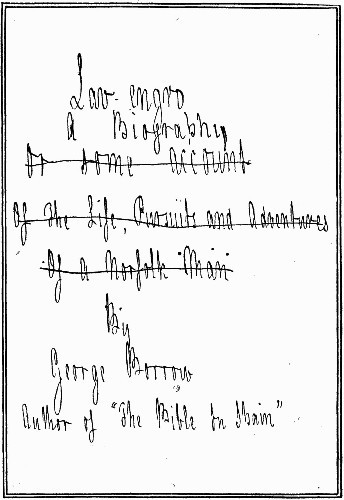 Lav-engro
A Biography
Or some account
Of the Life, Pursuits and Adventures
Of a Norfolk Man
By
George Borrow
Author of "The Bible in Spain"